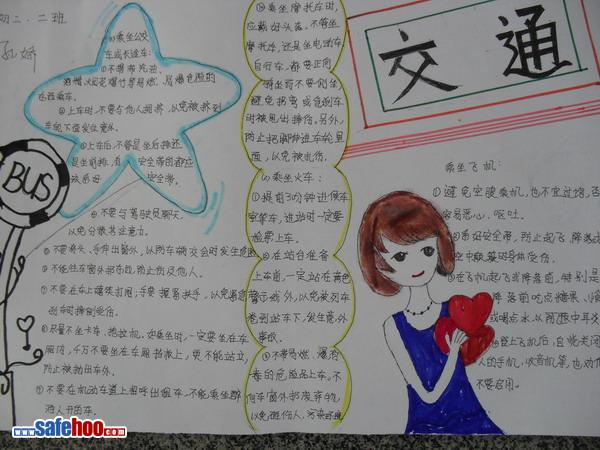 初二.二班
孔娇
交通
BUS
(2)乘坐公交
车或长途车:
①不携带汽油、
酒精、烟花爆竹等易燃、易爆危险的
东西乘车。
②上车时,不要与他人拥挤,以免被挤到
车轮下面发生意外。
③上车后,不管是坐后排还
是坐前排,有安全带的都应
安全带。
④不要与驾驶员聊天,
以免分散其注意力。
⑤不要将头、手伸出窗外,以防车辆交会时发生危险
⑥不能往车窗外扔东西,防止伤及他人。
⑦不要在车上嬉笑打闹;手要握紧扶手,以免紧急
刹车时摔倒受伤。
⑧尽量不坐卡车、拖拉机。如乘坐时,一定要坐在车
厢内,千万不要坐在车厢帮板上,更不能站立,
防止被抛出车外。
⑨不要在机动车道上招呼出租车,不能乘坐醉
酒人开的车。
乘坐摩托车时,
应戴好头盔。不管坐
摩托车,还是坐电动车,
自行车,都要正向
骑坐而不要侧坐,
避免拐弯或急刹车
时被甩出摔伤。另外,
防止把脚伸进车轮里
面,以免被轧伤。
乘坐火车:
①提前30分钟进候车
室等车,进站时一定要
检票上车。
②在站台准备
上车前,一定站在黄色
警示线外,以免被列车
卷到站车下,发生意外
事故。
③不带易燃、爆、有
毒的危险品上车。不
向车窗外扔废弃物,
以免砸伤人、污染环境
乘坐飞机:
①避免空腹乘机,也不宜过饱,否
容易恶心、呕吐。
②系好安全带,防止起飞、降落或
空中颠簸时导致受伤。
③在飞机起飞或降落前,特别是
降落前吃点糖果、
或喝点水,以防
④登上飞机后,自觉关闭
人的手机、收音机等,也
不要启用。
www.safehoo.com